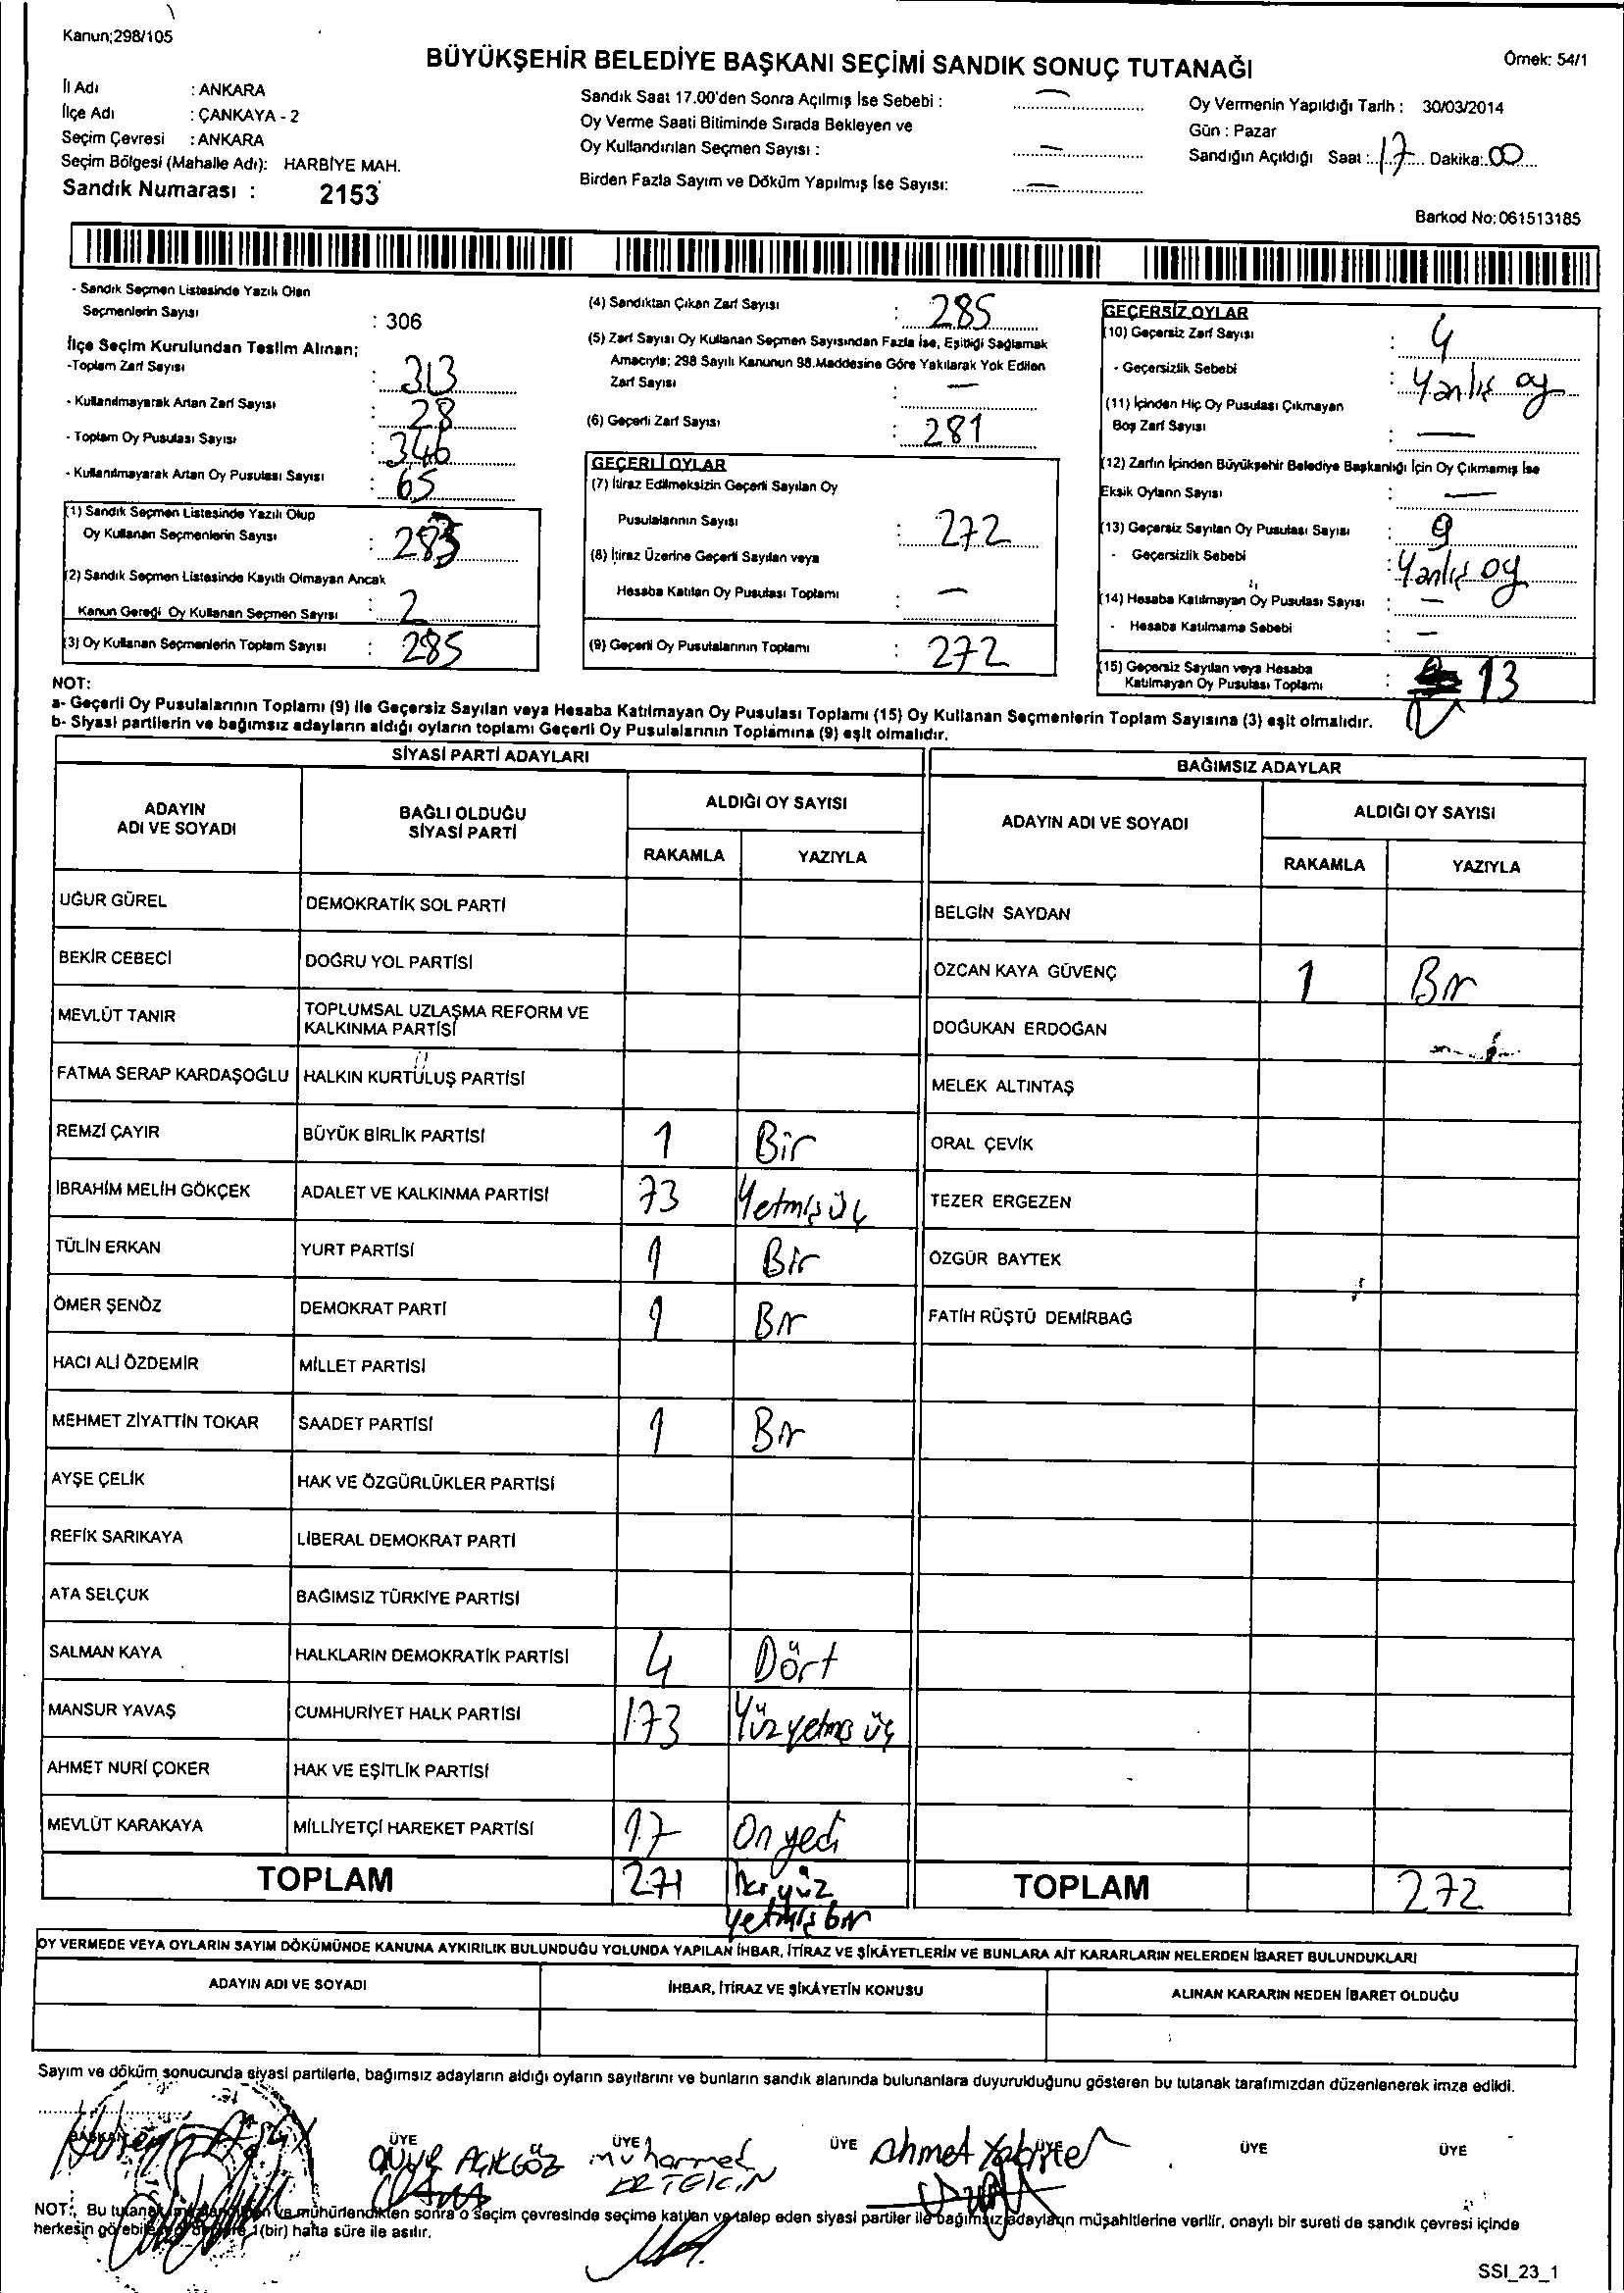 Kanun;298/105
BÜYÜKŞEHİR BELEDİYE BAŞKANI SEÇİMİ SANDIK SONUÇ TUTANAĞI
Örnek: 54/1
İl Adı : ANKARA
İlçe Adı : ÇANKAYA - 2
Seçim Çevresi : ANKARA
Seçim Bölgesi (Mahalle Adı): HARBİYE MAH.
Sandık Numarası : 2153
Sandık Saat 17.00'den Sonra Açılmış İse Sebebi : —
Oy Verme Saati Bitiminde Sırada Bekleyen ve
Oy Kullandırılan Seçmen Sayısı : —
Birden Fazla Sayım ve Döküm Yapılmış İse Sayısı: —
Oy Vermenin Yapıldığı Tarih : 30/03/2014
Gün : Pazar
Sandığın Açıldığı Saat : 17 Dakika: 00
Barkod No: 061513185
- Sandık Seçmen Listesinde Yazılı Olan
Seçmenlerin Sayısı : 306
İlçe Seçim Kurulundan Teslim Alınan;
-Toplam Zarf Sayısı : 313
- Kullanılmayarak Artan Zarf Sayısı : 28
- Toplam Oy Pusulası Sayısı : 346
- Kullanılmayarak Artan Oy Pusulası Sayısı : 65
(1) Sandık Seçmen Listesinde Yazılı Olup
Oy Kullanan Seçmenlerin Sayısı : 283
(2) Sandık Seçmen Listesinde Kayıtlı Olmayan Ancak
Kanun Gereği Oy Kullanan Seçmen Sayısı : 2
(3) Oy Kullanan Seçmenlerin Toplam Sayısı : 285
(4) Sandıktan Çıkan Zarf Sayısı : 285
(5) Zarf Sayısı Oy Kullanan Seçmen Sayısından Fazla İse, Eşitliği Sağlamak
Amacıyla; 298 Sayılı Kanunun 98.Maddesine Göre Yakılarak Yok Edilen
Zarf Sayısı : —
(6) Geçerli Zarf Sayısı : 281
GEÇERLİ OYLAR
(7) İtiraz Edilmeksizin Geçerli Sayılan Oy
Pusulalarının Sayısı : 272
(8) İtiraz Üzerine Geçerli Sayılan veya
Hesaba Katılan Oy Pusulası Toplamı : —
(9) Geçerli Oy Pusulalarının Toplamı : 272
GEÇERSİZ OYLAR
(10) Geçersiz Zarf Sayısı : 4
- Geçersizlik Sebebi : Yanlış oy
(11) İçinden Hiç Oy Pusulası Çıkmayan
Boş Zarf Sayısı : —
(12) Zarfın İçinden Büyükşehir Belediye Başkanlığı İçin Oy Çıkmamış İse
Eksik Oyların Sayısı : —
(13) Geçersiz Sayılan Oy Pusulası Sayısı : 9
- Geçersizlik Sebebi : Yanlış oy
(14) Hesaba Katılmayan Oy Pusulası Sayısı : —
- Hesaba Katılmama Sebebi : —
(15) Geçersiz Sayılan veya Hesaba
Katılmayan Oy Pusulası Toplamı : 13
NOT:
a- Geçerli Oy Pusulalarının Toplamı (9) ile Geçersiz Sayılan veya Hesaba Katılmayan Oy Pusulası Toplamı (15) Oy Kullanan Seçmenlerin Toplam Sayısına (3) eşit olmalıdır.
b- Siyasi partilerin ve bağımsız adayların aldığı oyların toplamı Geçerli Oy Pusulalarının Toplamına (9) eşit olmalıdır.
SİYASİ PARTİ ADAYLARI
ADAYIN ADI VE SOYADI
BAĞLI OLDUĞU SİYASİ PARTİ
ALDIĞI OY SAYISI
RAKAMLA YAZIYLA
UĞUR GÜREL DEMOKRATİK SOL PARTİ
BEKİR CEBECİ DOĞRU YOL PARTİSİ
MEVLÜT TANIR TOPLUMSAL UZLAŞMA REFORM VE
KALKINMA PARTİSİ
FATMA SERAP KARDAŞOĞLU HALKIN KURTULUŞ PARTİSİ
REMZİ ÇAYIR BÜYÜK BİRLİK PARTİSİ 1 Bir
İBRAHİM MELİH GÖKÇEK ADALET VE KALKINMA PARTİSİ 73 Yetmişüç
TÜLİN ERKAN YURT PARTİSİ 1 Bir
ÖMER ŞENÖZ DEMOKRAT PARTİ 1 Bir
HACI ALİ ÖZDEMİR MİLLET PARTİSİ
MEHMET ZİYATTİN TOKAR SAADET PARTİSİ 1 Bir
AYŞE ÇELİK HAK VE ÖZGÜRLÜKLER PARTİSİ
REFİK SARIKAYA LİBERAL DEMOKRAT PARTİ
ATA SELÇUK BAĞIMSIZ TÜRKİYE PARTİSİ
SALMAN KAYA HALKLARIN DEMOKRATİK PARTİSİ 4 Dört
MANSUR YAVAŞ CUMHURİYET HALK PARTİSİ 173 Yüzyetmişüç
AHMET NURİ ÇOKER HAK VE EŞİTLİK PARTİSİ
MEVLÜT KARAKAYA MİLLİYETÇİ HAREKET PARTİSİ 17 Onyedi
TOPLAM 271 ikiyüz
yetmiş bir
BAĞIMSIZ ADAYLAR
ADAYIN ADI VE SOYADI
ALDIĞI OY SAYISI
RAKAMLA YAZIYLA
BELGİN SAYDAN
ÖZCAN KAYA GÜVENÇ 1 Bir
DOĞUKAN ERDOĞAN
MELEK ALTINTAŞ
ORAL ÇEVİK
TEZER ERGEZEN
ÖZGÜR BAYTEK
FATİH RÜŞTÜ DEMİRBAĞ
TOPLAM 272
OY VERMEDE VEYA OYLARIN SAYIM DÖKÜMÜNDE KANUNA AYKIRILIK BULUNDUĞU YOLUNDA YAPILAN İHBAR, İTİRAZ VE ŞİKÂYETLERİN VE BUNLARA AİT KARARLARIN NELERDEN İBARET BULUNDUKLARI
ADAYIN ADI VE SOYADI İHBAR, İTİRAZ VE ŞİKÂYETİN KONUSU ALINAN KARARIN NEDEN İBARET OLDUĞU
Sayım ve döküm sonucunda siyasi partilerle, bağımsız adayların aldığı oyların sayılarını ve bunların sandık alanında bulunanlara duyurulduğunu gösteren bu tutanak tarafımızdan düzenlenerek imza edildi.
BAŞKAN ÜYE ÜYE ÜYE ÜYE ÜYE ÜYE
AÇIKGÖZ Muharrem Ahmet
NOT: Bu ve mühürlendikten sonra o seçim çevresinde seçime katılan ve talep eden siyasi partiler ile bağımsız adayların müşahitlerine verilir, onaylı bir sureti de sandık çevresi içinde
herkesin 1(bir) hafta süre ile asılır.
SSI_23_1